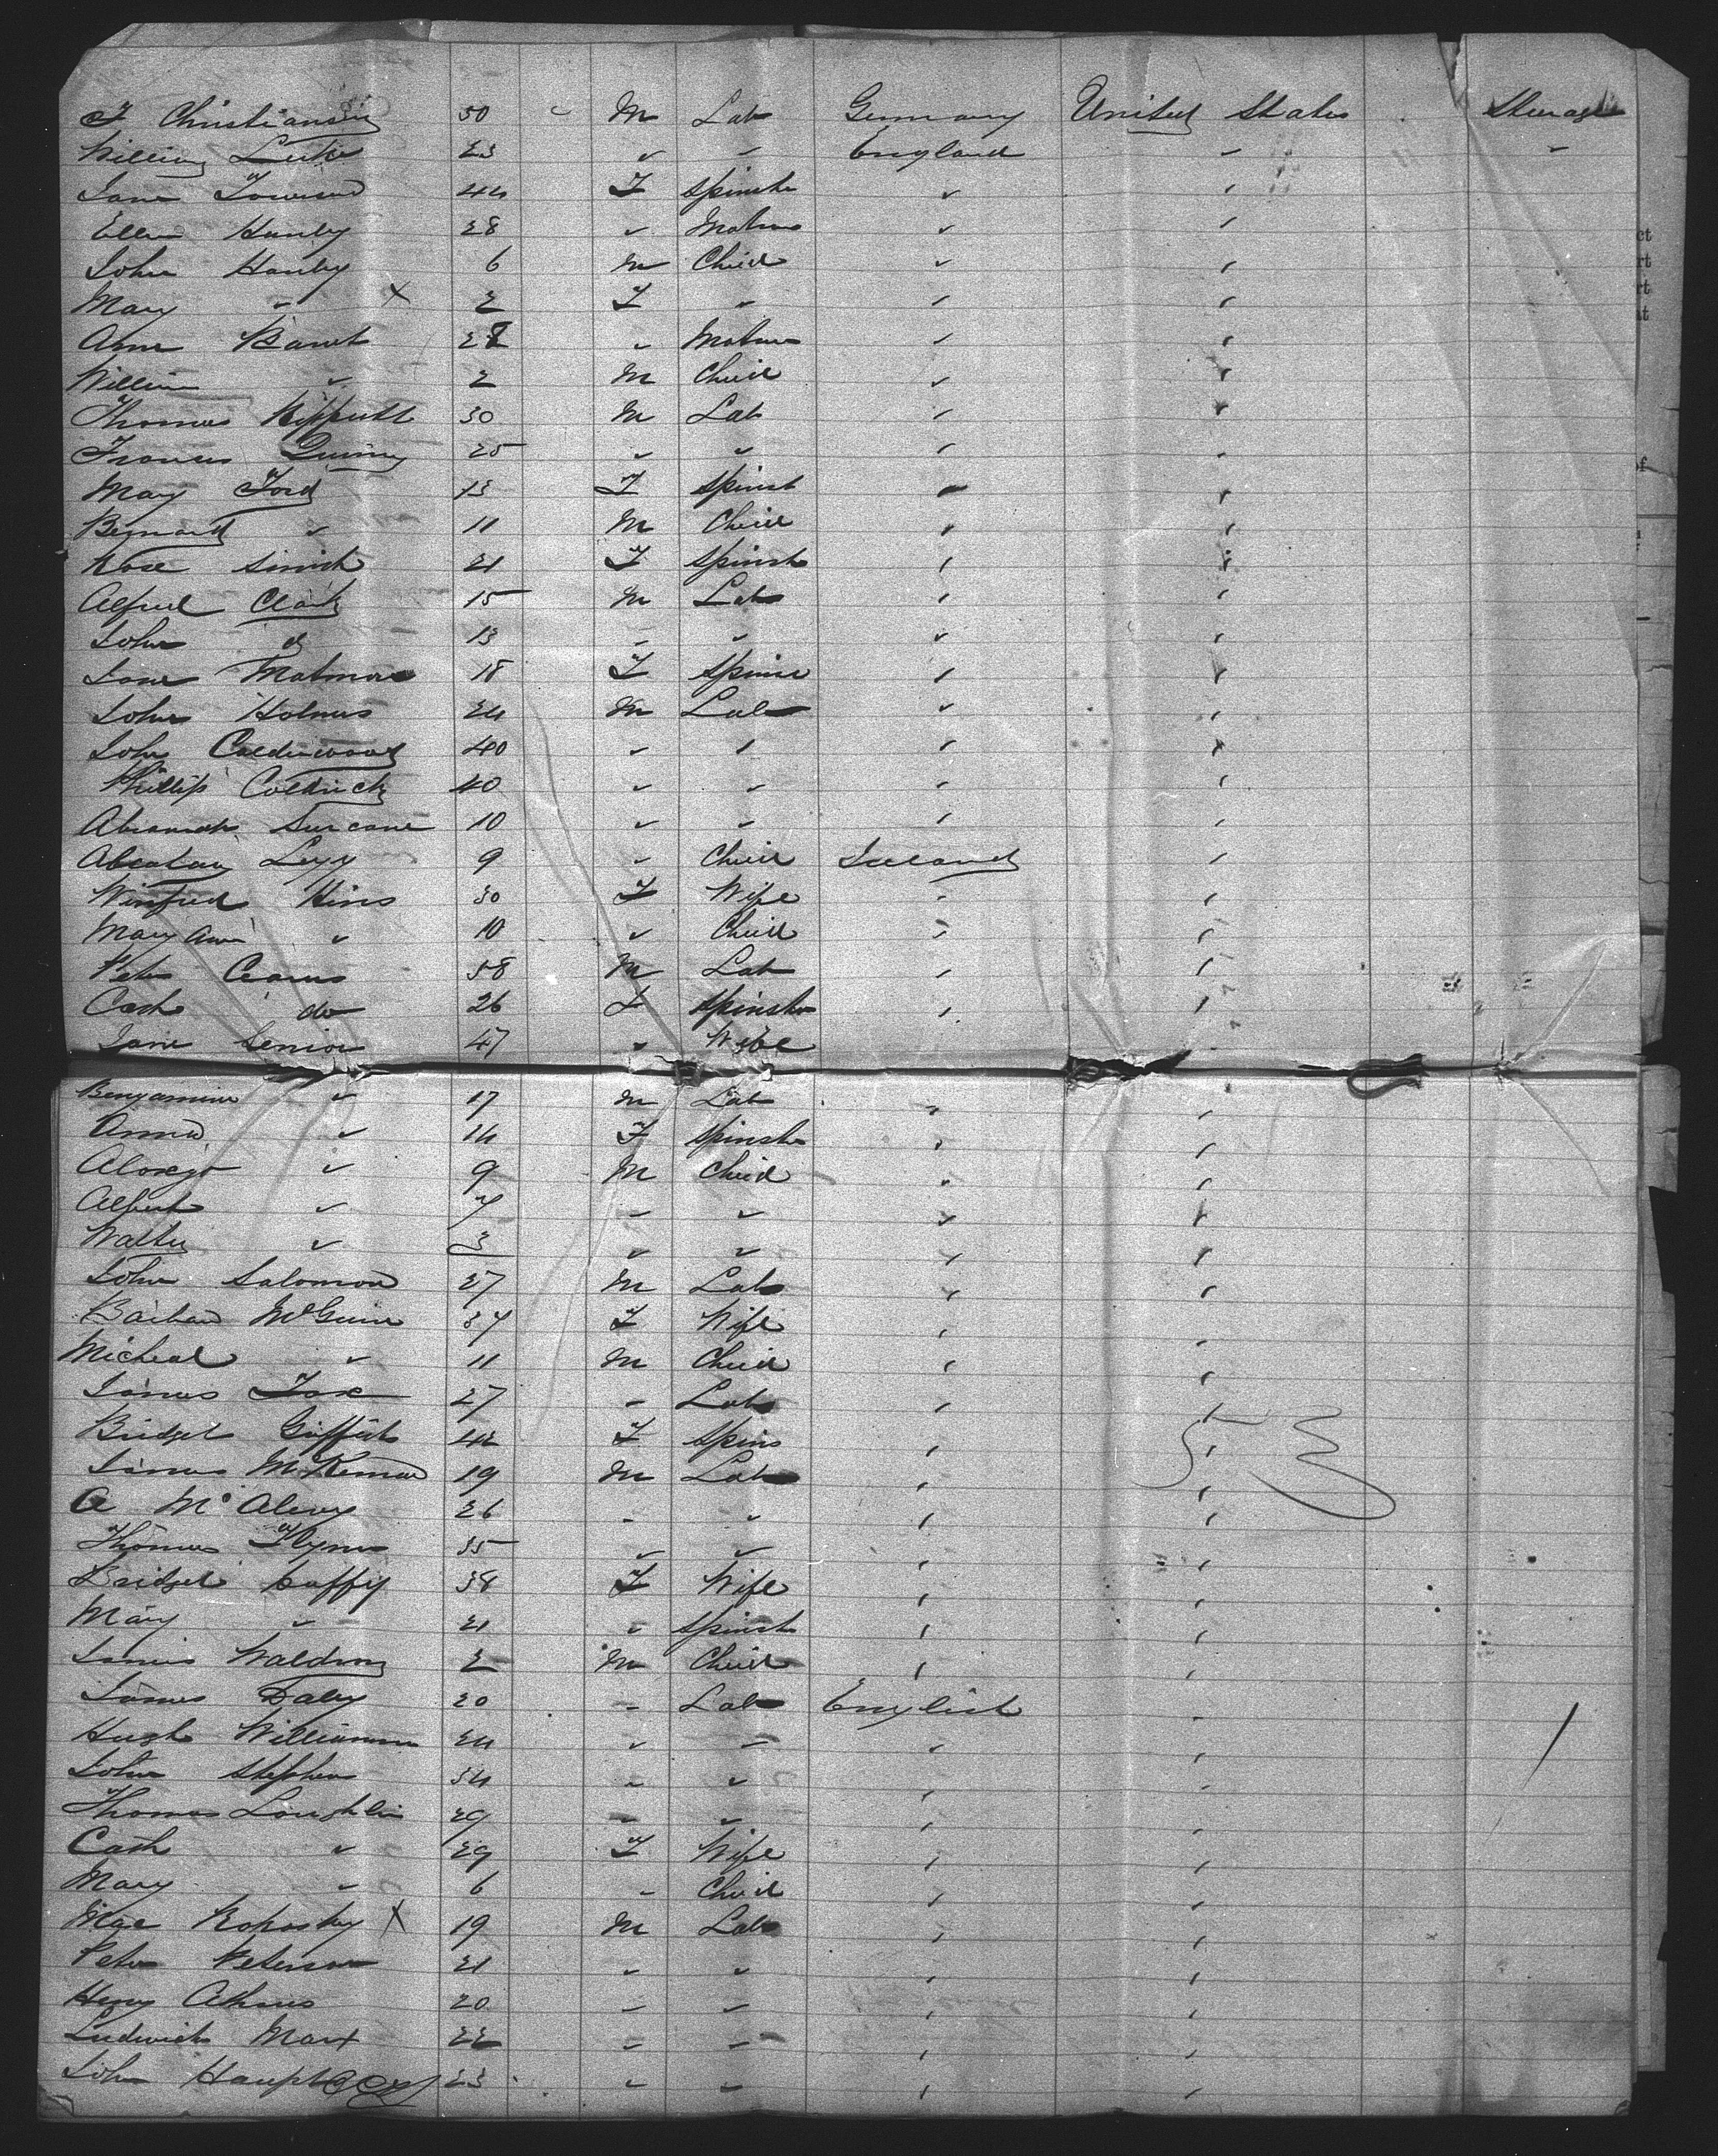 F Christiansen 50 " M Lab Germany United States Steerage
William Luke 23 " " England " "
Jane Townsend 44 F Spinster " "
Ellen Hanley 28 " Matron " "
John Hanley 6 M Child " "
Mary " X 2 F " " "
Anne Baret 28 " Matron " "
William " 2 M Child " "
Thomas 30 M Lab " "
Francis Quinn 25 " " " "
Mary Ford 13 F Spinst " "
Bernard " 11 M Child " "
Rose 21 F Spinst " "
Alfred Clark 15 M Lab " "
John do 13 " " " "
Jane 18 F Spins " "
John Holmes 24 M Lab " "
John Calderwood 40 " " " "
Phillip 40 " " " "
10 " " " "
Levy 9 " Child Ireland "
Winifred Hins 30 F Wife " "
Mary Ann " 10 " Child " "
Peter 58 M Lab " "
Cath do 26 F Spinster " "
Jane Senior 47 " Wife
Benjamine " 17 M Lab " "
Anna " 14 F Spinst " "
Alonzo " 9 M Child " "
Albert " 7 " " " "
Walter " 3 " " " "
John Salomon 27 M Lab " "
McGuire 37 F Wife " "
Micheal " 11 M Child " "
James Fox 27 " Lab " "
Bridget Griffith 42 F Spins " "
James McKernan 19 M Lab " "
A McAlevy 26 " " " "
Thomas Flynn 35 " " " "
Bridget Caffy 38 F Wife " "
Mary " 21 " Spinst " "
James Waldron 2 M Child " "
James Daley 20 " Lab English "
Hugh Williamson 24 " " " "
John Stephens 34 " " " "
Thomas Loughlin 29 " " " "
Cath " 29 F Wife " "
Mary " 6 " Child " "
X 19 M Lab " "
Peter Peterson 21 " " " "
Henry 20 " " " "
Ludwick Mart 22 " " " "
John Haupt 23 " " " "
53